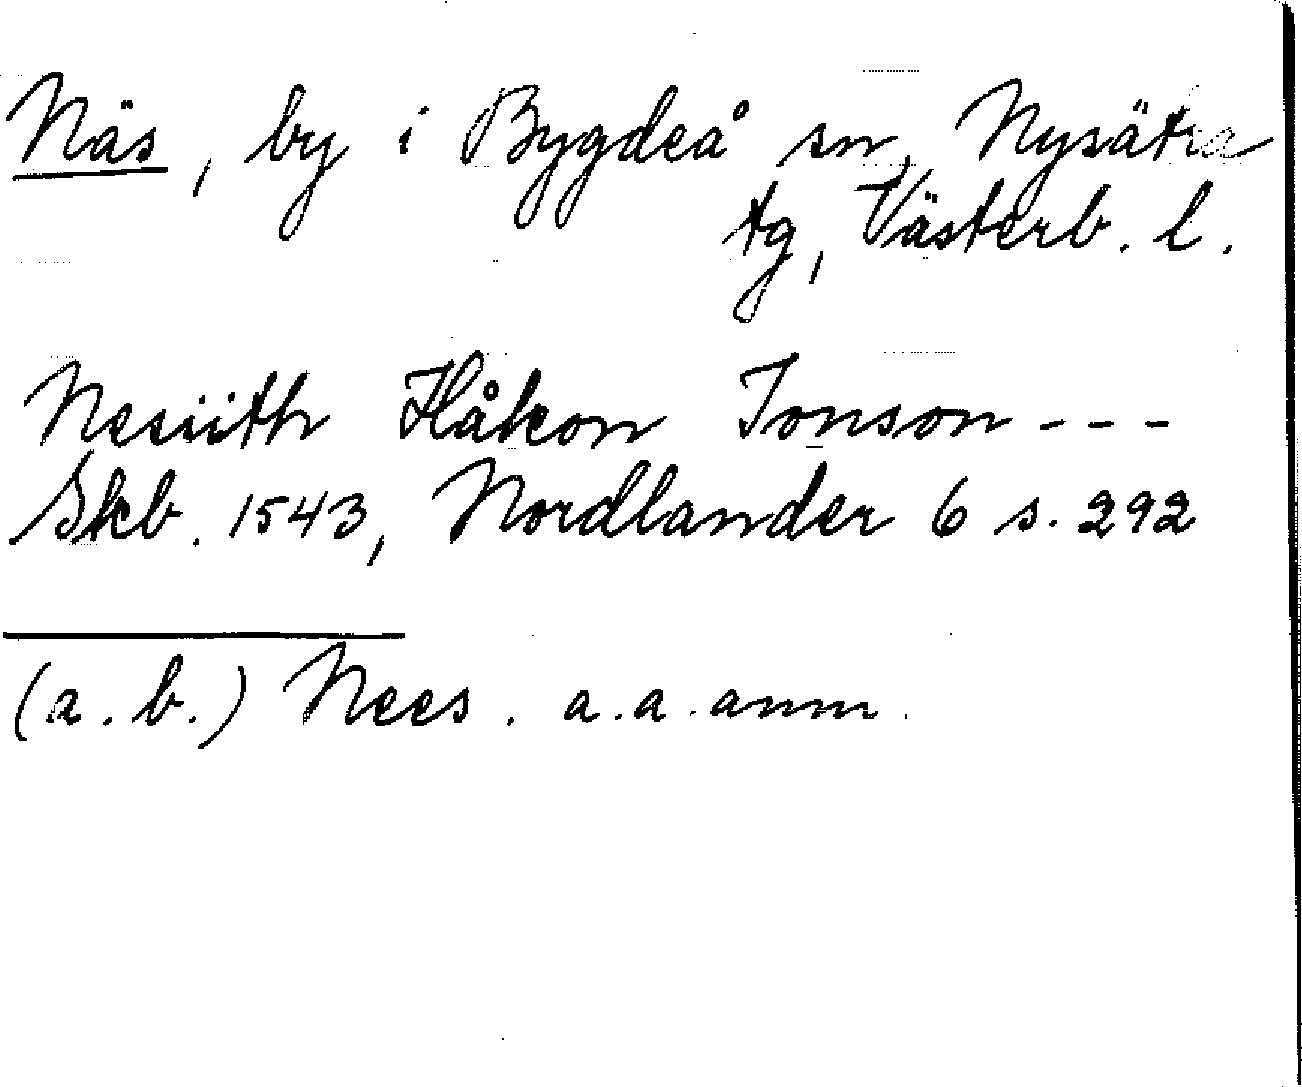 Näs, by i Bygdeå sn, Nysätra
tg, Västerb. l.
Nesiith Håkon Jonson ---
Skb. 1543, Nordlander 6 s. 292
(a. b.) Nees. a.a. anm.